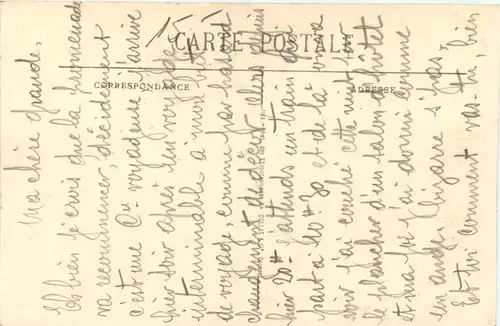 15
CARTE POSTALE
CORRESPONDANCE
ADRESSE
Ma chère grande,
Eh bien je crois que la promenade
va recommencer, décidément
c'est une vagadence j'arrive
hier soir après un voyage
interminable à mon but
de voyage, comme par hasard
changement de décor alors depuis
hier 20h j'attends un train qui
part à 10h30 et de là
soir j'ai couché cette nuit sur
le plancher d'un salon d'hôtel
et ma foi j'ai dormi comme
un ange. bizarre n'pas.
Et toi comment vas-tu, bien